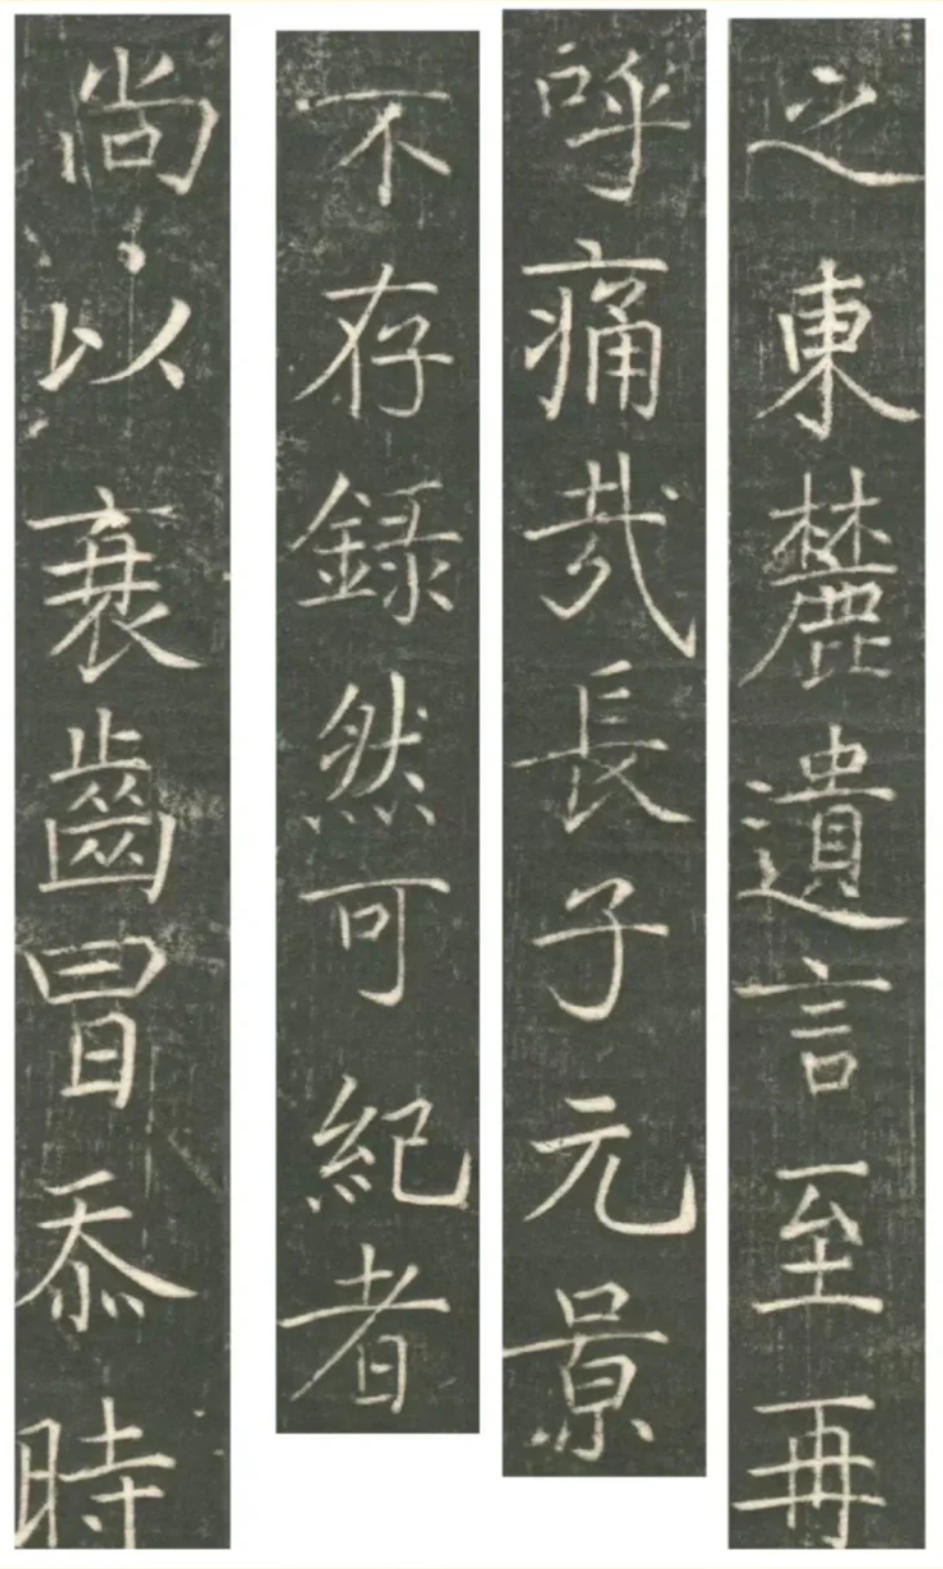 之東麓遺言至再
呼痛哉長子元景
不存録然可紀者
尚以衰齒冒忝時